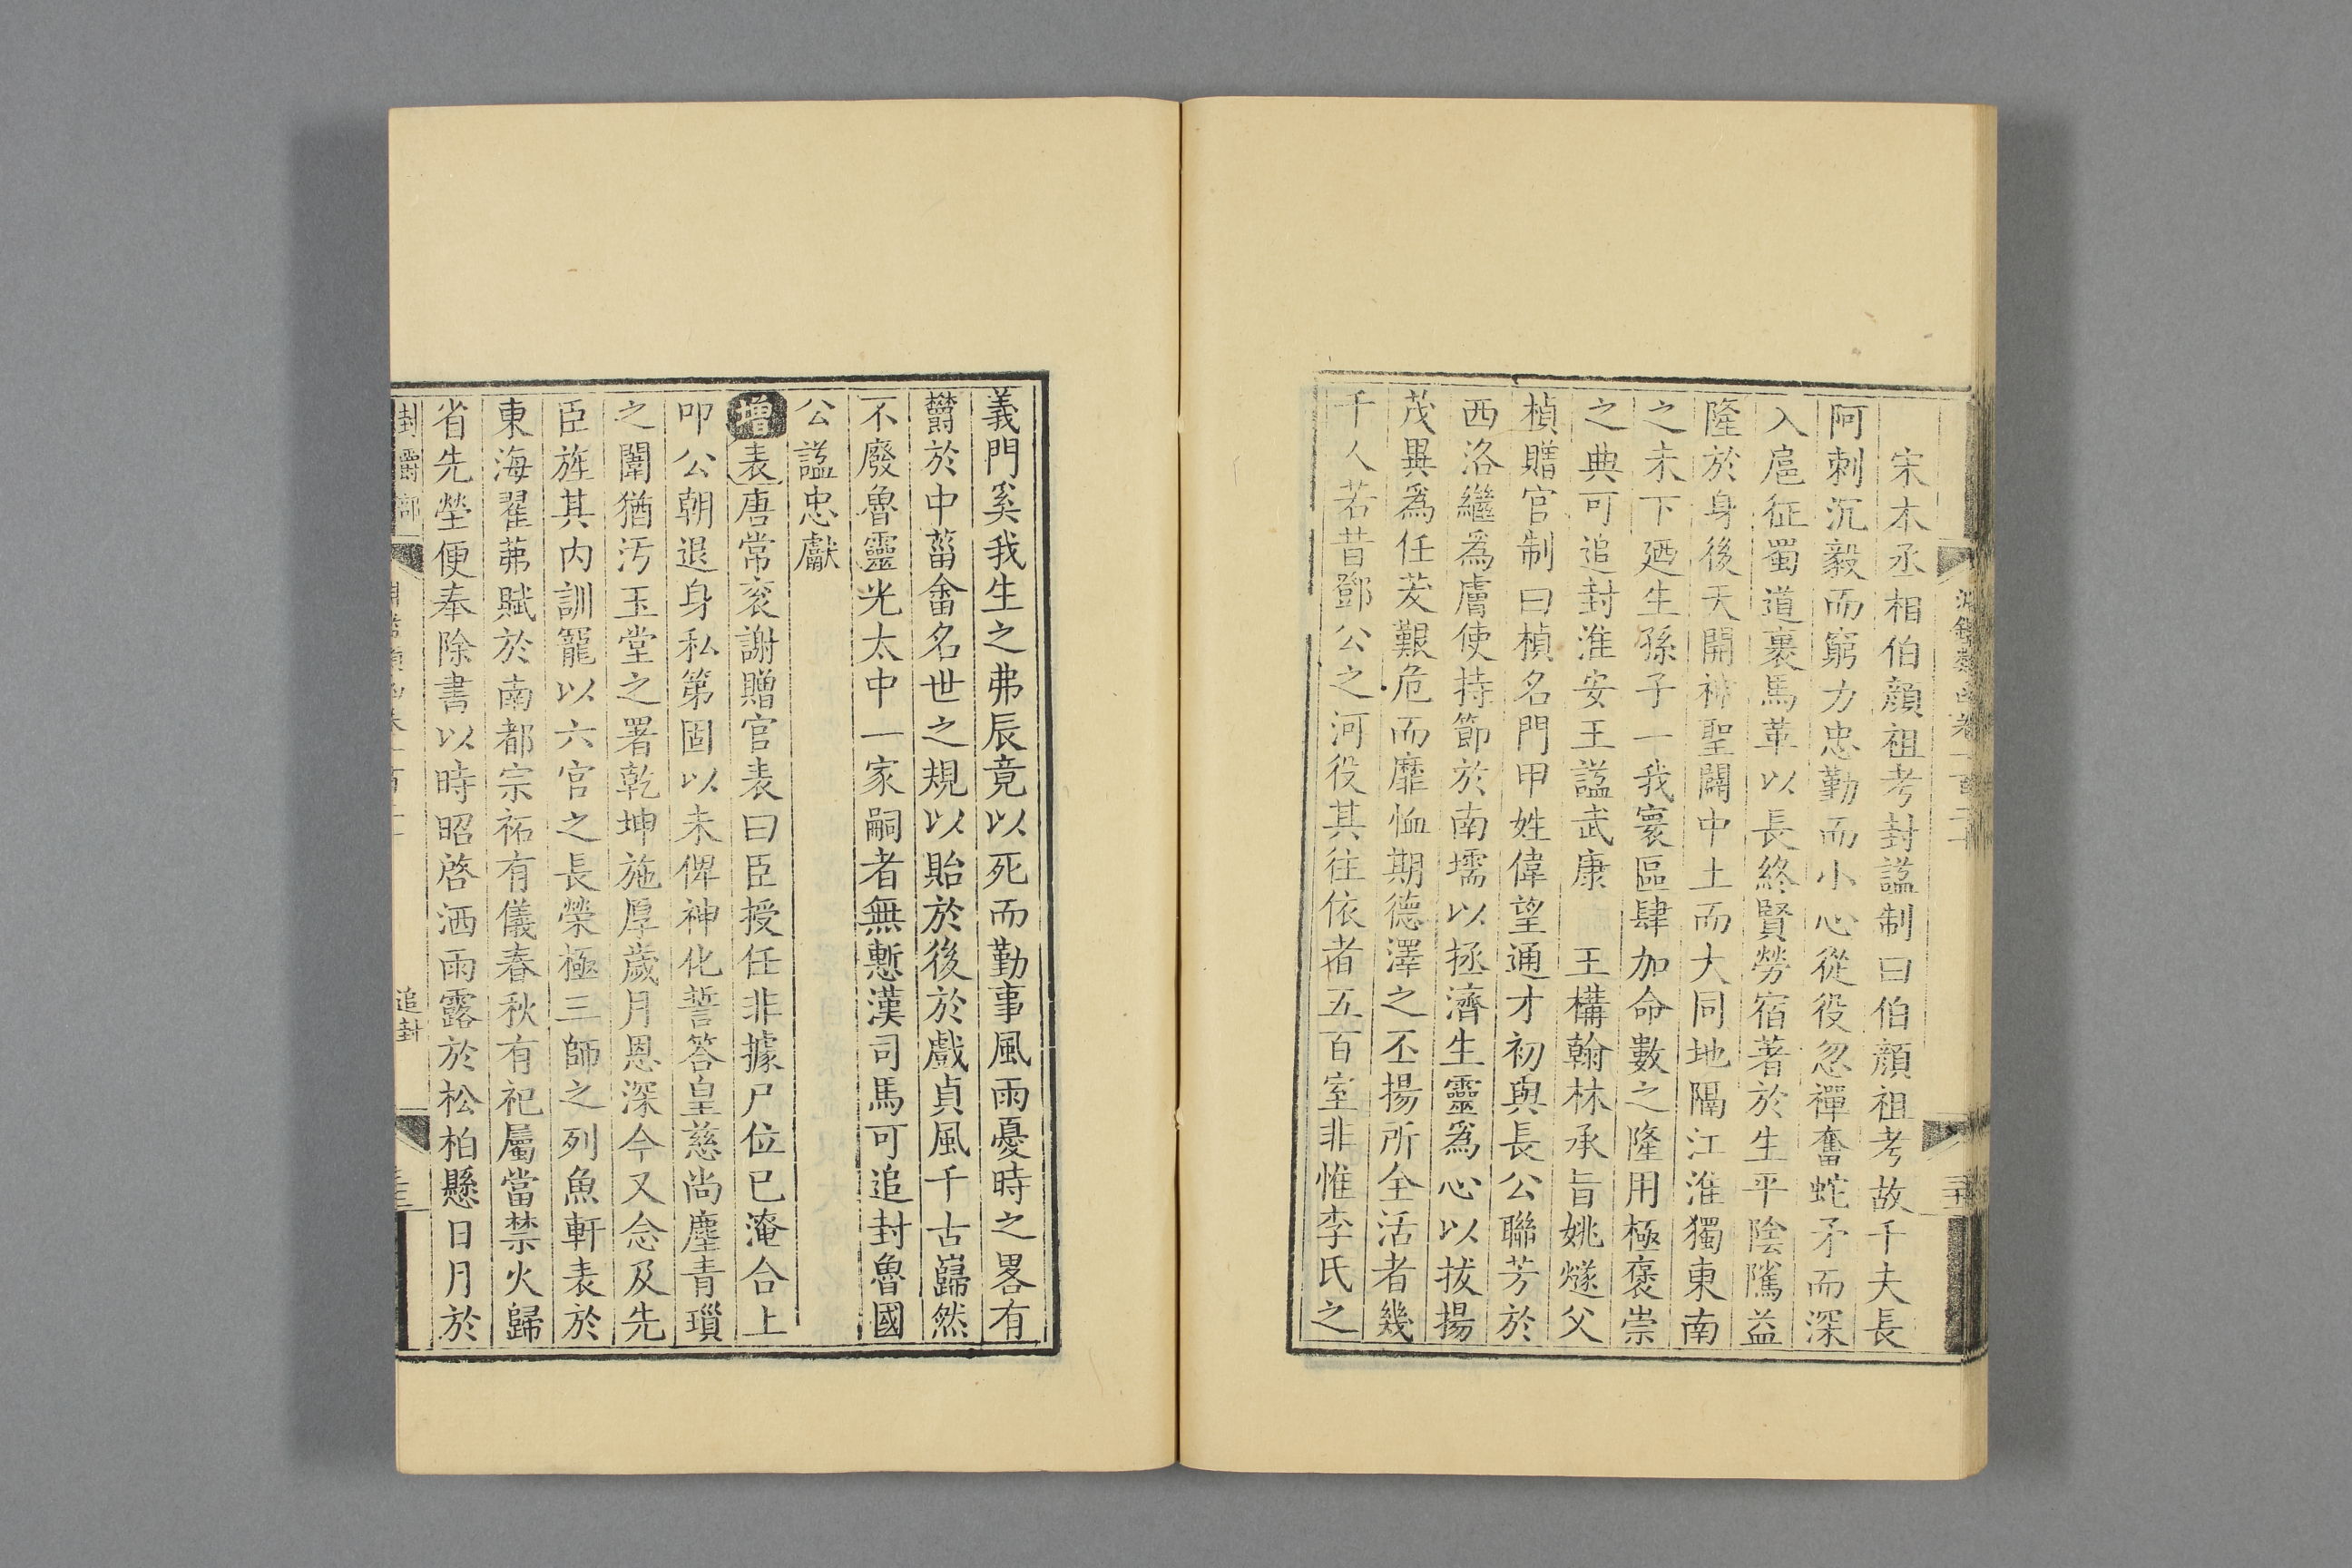 宋本丞相伯顔祖考封諡制曰伯顔祖考故千夫長
阿刺沉毅而窮力忠勤而小心從役忽禪奮蛇矛而深
入扈征蜀道裹馬革以長終賢勞宿著於生平陰隲益
隆於身後天開神聖闢中土而大同地隔江淮獨東南
之未下廼生孫子一我寰區肆加命數之隆用極褒崇
之典可追封淮安王諡武康 王構翰林承旨姚燧父
楨贈官制曰楨名門甲姓偉望通才初與長公聯芳於
西洛繼爲膚使持節於南壖以拯濟生靈爲心以拔揚
茂異爲任茇艱危而靡恤期德澤之丕揚所全活者幾
千人若昔鄧公之河役其往依者五百室非惟李氏之
義門奚我生之弗辰竟以死而勤事風雨憂時之畧有
欝於中菑畬名世之規以貽於後於戲貞風千古巋然
不廢魯靈光太中一家嗣者無慙漢司馬可追封魯國
公諡忠獻
增表唐常衮謝贈官表曰臣授任非據尸位已淹合上
叩公朝退身私第固以未俾神化誓答皇慈尚塵青瑣
之闈猶汚玉堂之署乾坤施厚歲月恩深今又念及先
臣旌其内訓寵以六官之長榮極三師之列魚軒表於
東海翟茀賦於南都宗祏有儀春秋有祀屬當禁火歸
省先塋便奉除書以時昭啓洒雨露於松柏懸日月於
封爵部
追封